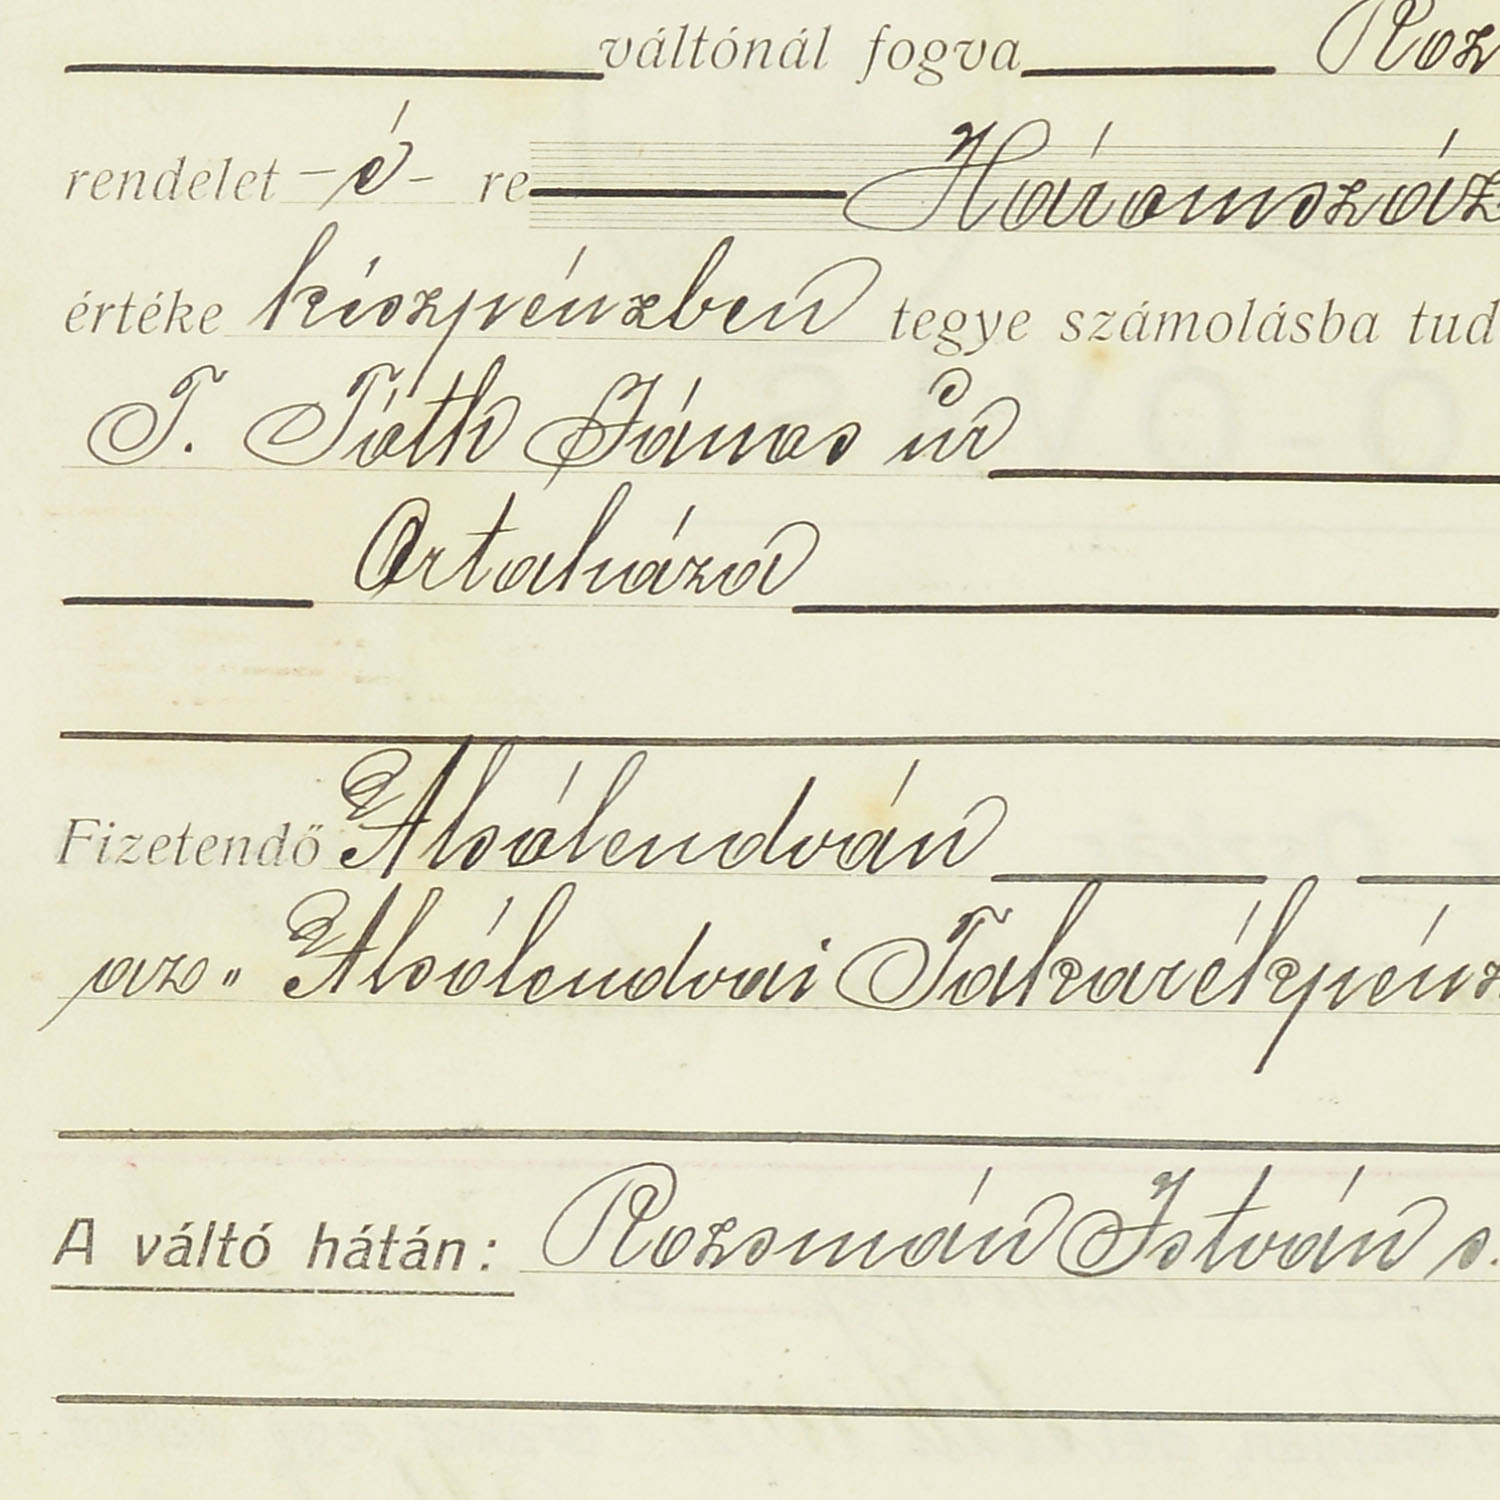 váltónál fogva Roz
rendelet -é- re Háromszáz
értéke kiszpénzben tegye számolásba tud
T. Tóth János úr
Ortaháza
Fizetendő Alsólendván
az „ Alsólendvai Takarékpénz
A váltó hátán: Rozsmán István s.